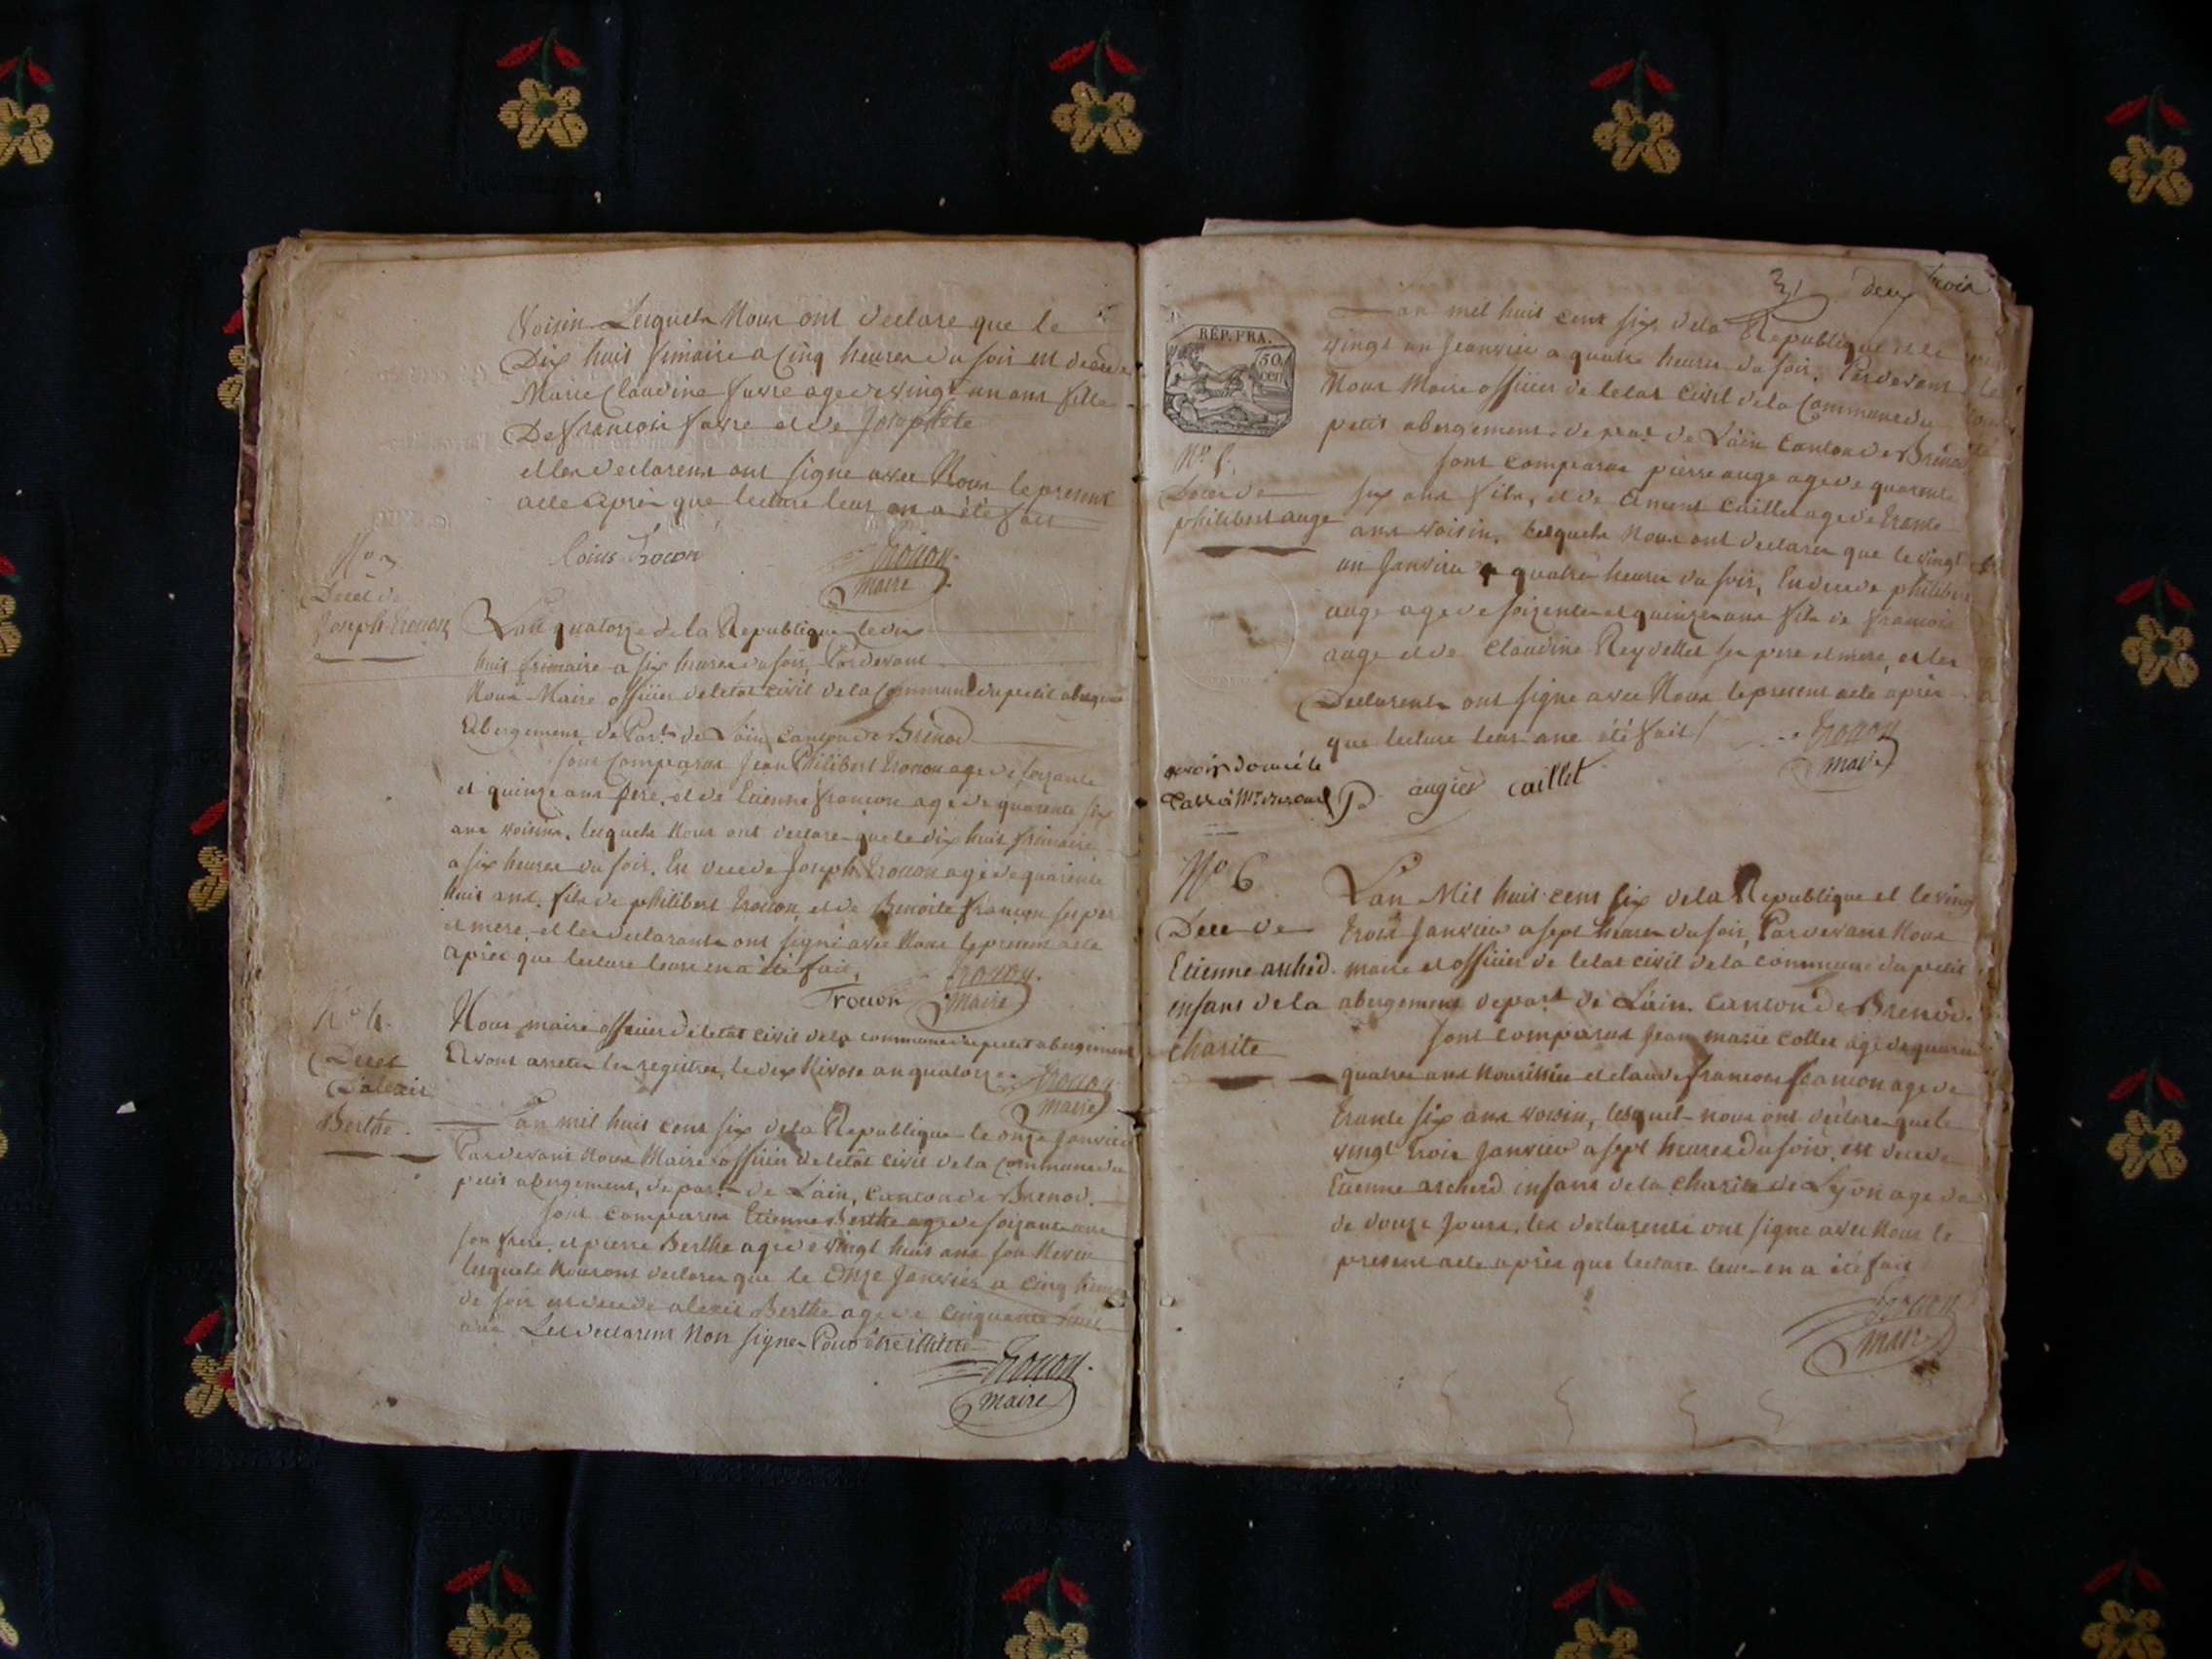 Voisin Lesquels Nous ont declare que le
Dix huit frimaire a Cinq heures du soir est decede
Marie Claudine favre age de vingt un ans fille
De francois favre et de Josephete
et les declarens ont signe avec Nous le present
acte après que lecture leur en a été fait
louis Trocon
Trocon
maire
Decet de
Joseph Trocon
L'an quatorze de la Republique le dix
huit frimaire a six heures du soir, Par devant
Nous Maire officier de letat civil de la Commune du petit aberge
Abergement de Part de Lain Canton de Brenod
sont Comparus Jean Philibert Trocon age de soixante
et quinze ans pere, et de Etienne francon age de quarente six
ans voisins. lesquels Nous ont declare que le dix huit frimaire
a six heures du soir. Est decede Joseph Trocon age de quarente
huit ans. fils de philibert Trocon, et de Benoite françon ses per
et mere, et les declarants ont signé avec Nous le present acte
après que lecture leurs en a été fait,
Trocon Trocon
maire
N° 4.
Decet
D'alexis
Berthe.
Nous maire officier de letat civil de la commune du petit abergement
Avons arreter les registres, le dix Nivose an quatorze Trocon
maire
L'an mil huit cent six de la Republique le onze Janvier
Par devant Nous Maire officier de letat civil de la commune du
petit abergement, depart de Lain, Canton de Brenod.
sont comparus Etienne Berthe age de soixante ans
son frere, et pierre Berthe age de vingt huit ans son Neveu
lesquels Nous ont declarer que le onze Janvier a cinq heures
de soir est decede alexis Berthe age de cinquante huit
ans Les declarens Non signer Pour être illitere
Trocon
maire
3 deux trois
RÉP. FRA.
50 cen
L'an mil huit cent six de la Republique et le
vingt un Jeanvier a quatre heures du soir. Par devant
Nous Maire officier de letat civil de la Commune du
petit abergement depart de Lain Canton de Brenod
N° 5.
Decer de
philibert auge
sont comparus pierre auge age de quarente
six ans fils, et de Clment Caillet age de trente
ans voisin. Lesquels Nous ont declarer que le vingt
un Janvier a quatre heures du soir, Est decede philibert
auge age de soixente et quinze ans fils de francois
auge et de Claudine Reydellet ses pere et mere, et les
Declarents ont signe avec Nous le present acte après
que lecture leurs ane été fait
Trocon
maire
P augier caillet
N° 6
Dece de
Etienne archerd.
enfant de la
charite
L'an Mil huit cent six de la Republique et le vingt
trois Janvier a sept heures du soir, Par devant Nous
maire et officier de letat civil de la commune du petit
abergement depart de Lain. Canton de Brenod.
sont comparus Jean marie Collet age de quarente
quatre ans Nourissier et claude francois francon age de
trante six ans voisin, lesquel nous ont declare que le
vingt trois Janvier a sept heures du soir. est decede
Etienne archerd enfant de la charite de Lyon age de
de douze Jours, les declarents ont signe avec Nous le
present acte après que lecture leur en a été fait
Trocon
maire